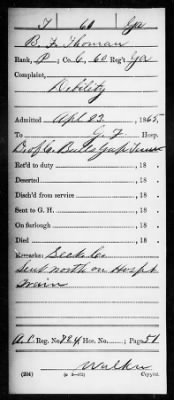 T 60 Ga
B. F. Thomas
Rank, P; Co. C, 60 Reg't Ga
Complaint,
Debility
Admitted Apl 23, 1865,
G. F. Hosp.
Ret'd to duty , 18
Deserted , 18
Disch'd from service , 18
Sent to G. H. , 18
On furlough , 18
Died , 18
Remarks:
Sent north on Hospt
train
Reg. No. Hos. No. ; Page 51
(234) Copyist.